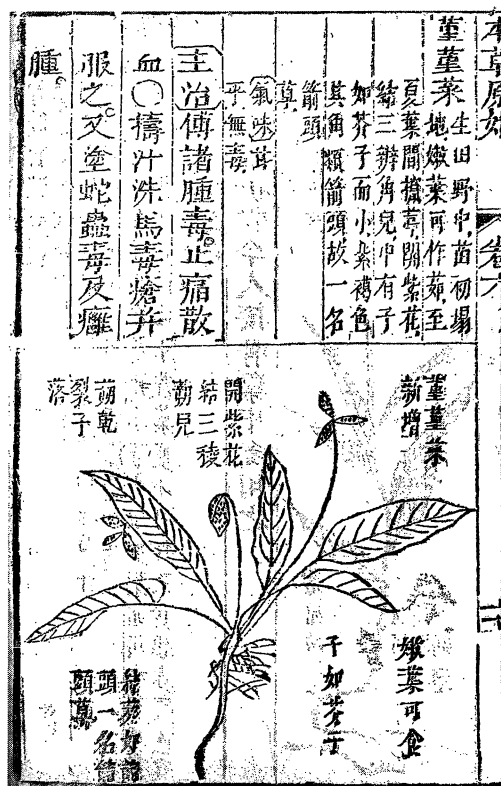 本草原始 卷六
堇堇菜 生田野中苗初塌
地嫩葉可作茹至
夏葉間攛葶開紫花
結三瓣角兒中有子
如芥子而小茶褐色
其角類箭頭故一名
箭頭
草
氣味甘
平無毒
主治傅諸腫毒。止痛散
血〇擣汁洗馬毒瘡并
服之。又塗蛇蟲毒及癰
腫。
堇堇菜
新增
開紫花
結三稜
蒴兒
蒴乾
裂子
落
嫩葉可食
子如芥子
稜蒴如箭
頭一名箭
頭草